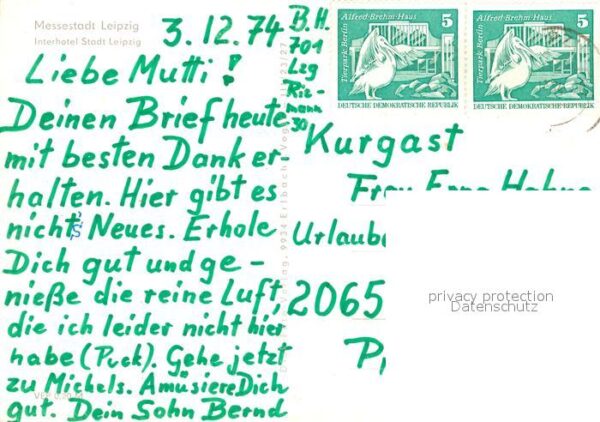 Messestadt Leipzig
Interhotel Stadt Leipzig
3.12.74
Liebe Mutti!
Deinen Brief heute
mit besten Dank er-
halten. Hier gibt es
nichts Neues. Erhole
Dich gut und ge-
nieße die reine Luft,
die ich leider nicht hier
habe (Puck). Gehe jetzt
zu Michels. Amüsiere Dich
gut. Dein Sohn Bernd
B.H.
701
Lzg
Rie-
mann
30
Alfred-Brehm-Haus 5
Tierpark Berlin
DEUTSCHE DEMOKRATISCHE REPUBLIK
Alfred-Brehm-Haus 5
Tierpark Berlin
DEUTSCHE DEMOKRATISCHE REPUBLIK
Kurgast
Frau Erna
Urlaub
2065
privacy protection
Datenschutz